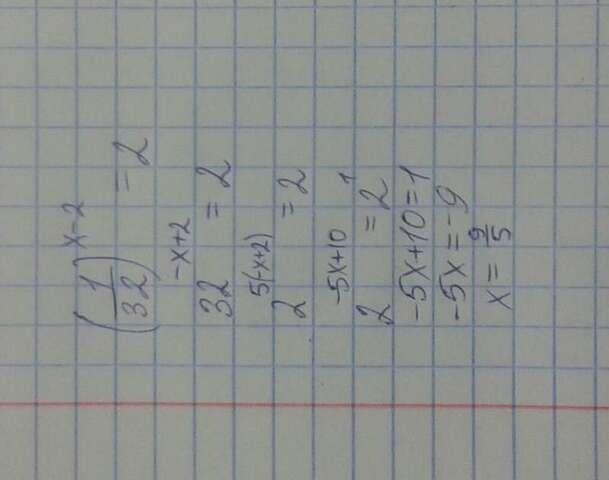 (1/32)^(x-2) = 2
32^(-x+2) = 2
2^(5(-x+2)) = 2
2^(-5x+10) = 2^1
-5x+10=1
-5x=-9
x = 9/5